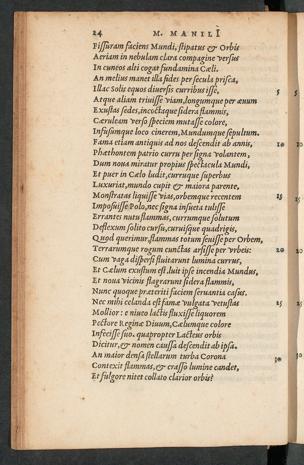 24 M. MANILÎ
Fissuram faciem Mundi, stipatus & Orbis
Aeriam in nebulam clara compagine versus
In cuneos alti cogat fundamina Cæli.
An melius manet illa fides per secula prisca,
Illac Solis equos diversis curribus isse, 5 5
Atque aliam triuisse viam, longumque per ævum
Exustas sedes, incoctaque sidera flammis,
Cæruleam verso speciem mutasse colore,
Infusumque loco cinerem, Mundumque sepultum.
Fama etiam antiquis ad nos descendit ab annis, 10 10
Phæthontem patrio curru per signa volantem,
Dum noua miratur propius spectacula Mundi,
Et puer in Cælo ludit, curruque superbus
Luxuriat, mundo cupit & maiora parente,
Monstratas liquisse vias, orbemque recentem 15 15
Imposuisse Polo, nec signa insueta tulisse
Errantes nutu flammas, currumque solutum
Deflexum solito cursu, curuisque quadrigis.
Quod querimur, flammas totum sæuisse per Orbem,
Terrarumque rogum cunctas arsisse per vrbeis: 20 20
Cum vaga dispersi fluitarunt lumina currus,
Et Cælum exustum est. luit ipse incendia Mundus,
Et noua vicinis flagrarunt sidera flammis,
Nunc quoque præteriti faciem seruantia casus.
Nec mihi celanda est famæ vulgata vetustas 25 25
Mollior: e niueo lactis fluxisse liquorem
Pectore Reginæ Diuum, Cælumque colore
Infecisse suo. quapropter Lacteus orbis
Dicitur, & nomen caussa descendit ab ipsa.
An maior densa stellarum turba Corona 30
Contexit flammas, & crasso lumine candet,
Et fulgore nitet collato clarior orbis?